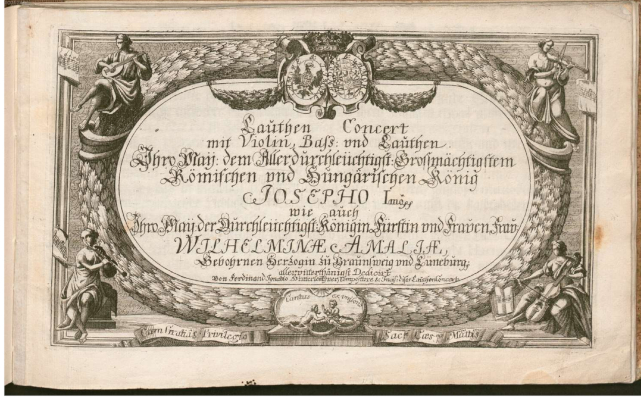 Lauthen Concert
mit Violin, Bass: vnd Lauthen.
Ihro May: dem Allerdurchleüchtigst: Grossmächtigstem
Römischen vnd Hungarischen König
JOSEPHO Imo
wie auch
Ihro May: der Dürchleüchtigst: Königin, Fürstin vnd Frauen Frau,
WILHELMINÆ AMALIÆ,
Gebohrnen Hertzogin zü Braunsweig vnd Luneburg,
allerunterthänigst Dedicirt
Von Ferdinand Ignatio
Cum Gratia et Privilegio
Sacræ Cæs: